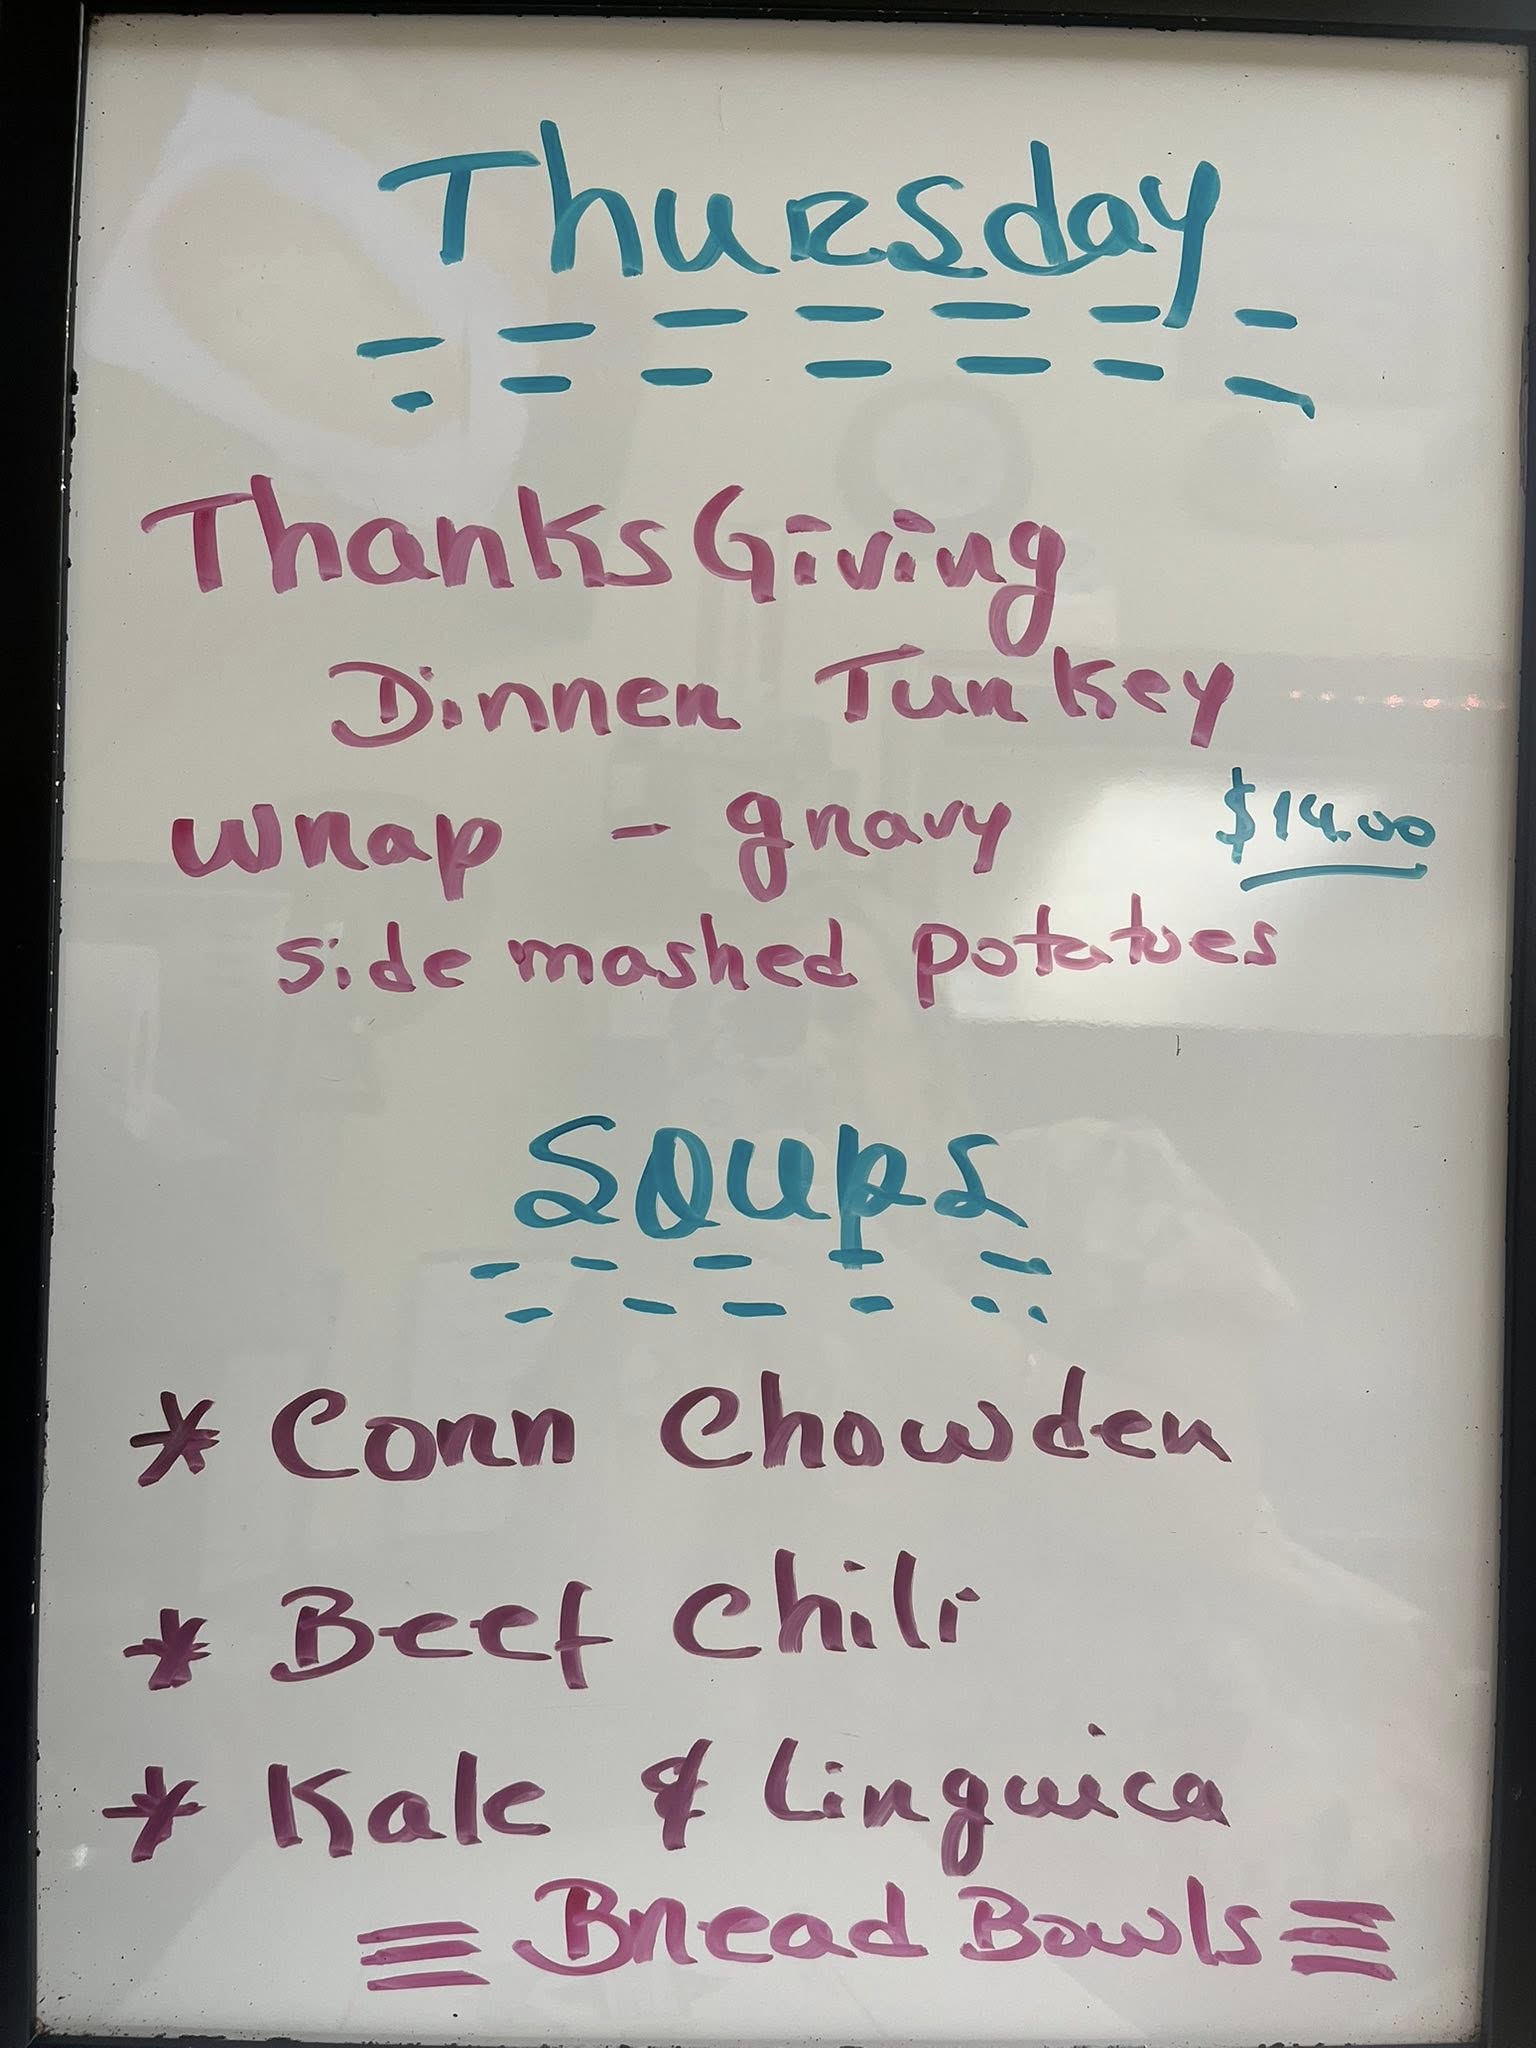 Thursday
ThanksGiving
Dinner Turkey
wrap - gravy $14.00
side mashed potatoes
Soups
* Corn Chowder
* Beef Chili
* Kale & Linguica
Bread Bowls